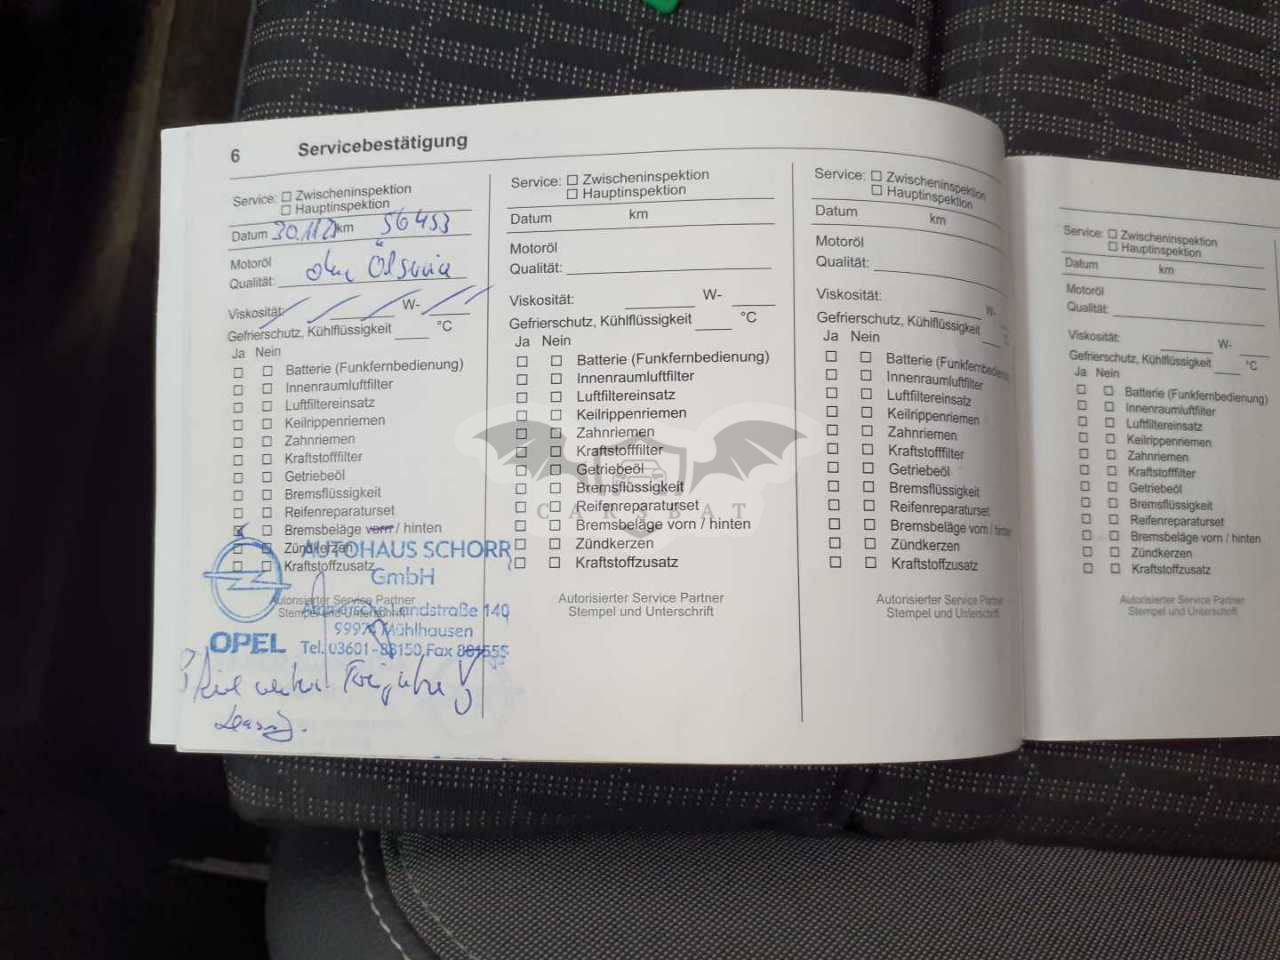 6 Servicebestätigung
Service: Zwischeninspektion
Hauptinspektion
Datum 30.11.2 km 56453
Motoröl
Qualität: ohne Ölservice
Viskosität: W-
Gefrierschutz, Kühlflüssigkeit °C
Ja Nein
Batterie (Funkfernbedienung)
Innenraumluftfilter
Luftfiltereinsatz
Keilrippenriemen
Zahnriemen
Kraftstofffilter
Getriebeöl
Bremsflüssigkeit
Reifenreparaturset
Bremsbeläge vorn / hinten
Zündkerzen
Kraftstoffzusatz
Autorisierter Service Partner
Stempel und Unterschrift
AUTOHAUS SCHORR
GmbH
Landstraße 140
99974 Mühlhausen
OPEL Tel. 03601-88150, Fax 881555
Service: Zwischeninspektion
Hauptinspektion
Datum km
Motoröl
Qualität:
Viskosität: W-
Gefrierschutz, Kühlflüssigkeit °C
Ja Nein
Batterie (Funkfernbedienung)
Innenraumluftfilter
Luftfiltereinsatz
Keilrippenriemen
Zahnriemen
Kraftstofffilter
Getriebeöl
Bremsflüssigkeit
Reifenreparaturset
Bremsbeläge vorn / hinten
Zündkerzen
Kraftstoffzusatz
Autorisierter Service Partner
Stempel und Unterschrift
CARSBAT
Service: Zwischeninspektion
Hauptinspektion
Datum km
Motoröl
Qualität:
Viskosität: W-
Gefrierschutz, Kühlflüssigkeit °C
Ja Nein
Batterie (Funkfernbedienung)
Innenraumluftfilter
Luftfiltereinsatz
Keilrippenriemen
Zahnriemen
Kraftstofffilter
Getriebeöl
Bremsflüssigkeit
Reifenreparaturset
Bremsbeläge vorn / hinten
Zündkerzen
Kraftstoffzusatz
Autorisierter Service Partner
Stempel und Unterschrift
Service: Zwischeninspektion
Hauptinspektion
Datum km
Motoröl
Qualität:
Viskosität: W-
Gefrierschutz, Kühlflüssigkeit °C
Ja Nein
Batterie (Funkfernbedienung)
Innenraumluftfilter
Luftfiltereinsatz
Keilrippenriemen
Zahnriemen
Kraftstofffilter
Getriebeöl
Bremsflüssigkeit
Reifenreparaturset
Bremsbeläge vorn / hinten
Zündkerzen
Kraftstoffzusatz
Autorisierter Service Partner
Stempel und Unterschrift